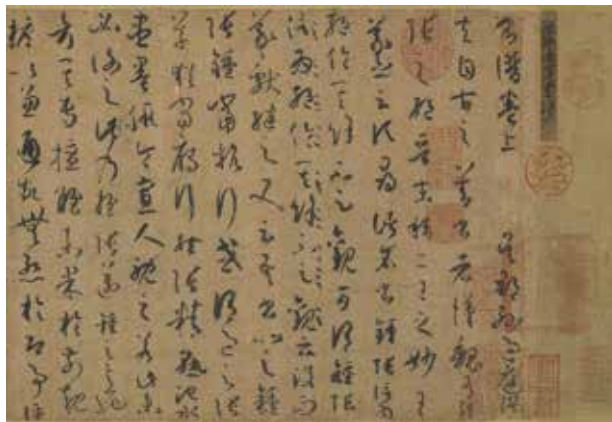 書譜卷上 吳郡孫過庭撰
夫自古之善書者漢魏有鍾
張之絕晉末稱二王之妙王
羲之云頃尋諸名書鍾張信為
絕倫其餘不足觀可謂鍾張
信為絕倫其餘不足觀云沒而
羲獻繼之又云吾書比之鍾
張鍾當抗行或謂過之張
草猶當鴈行然張精熟池水
盡墨假令寡人耽之若此未
必謝之此乃推張邁鍾之意也
考其專擅雖未果於前規
摭以兼通故無慚於即事評